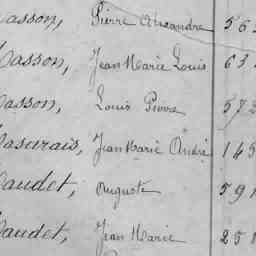 Masson, Pierre Alexandre 56
Masson, Jean Marie Louis 63
Masson, Louis Pierre 573
Masurais, Jean Marie André 145
Maudet, Auguste 591
Maudet, Jean Marie 251